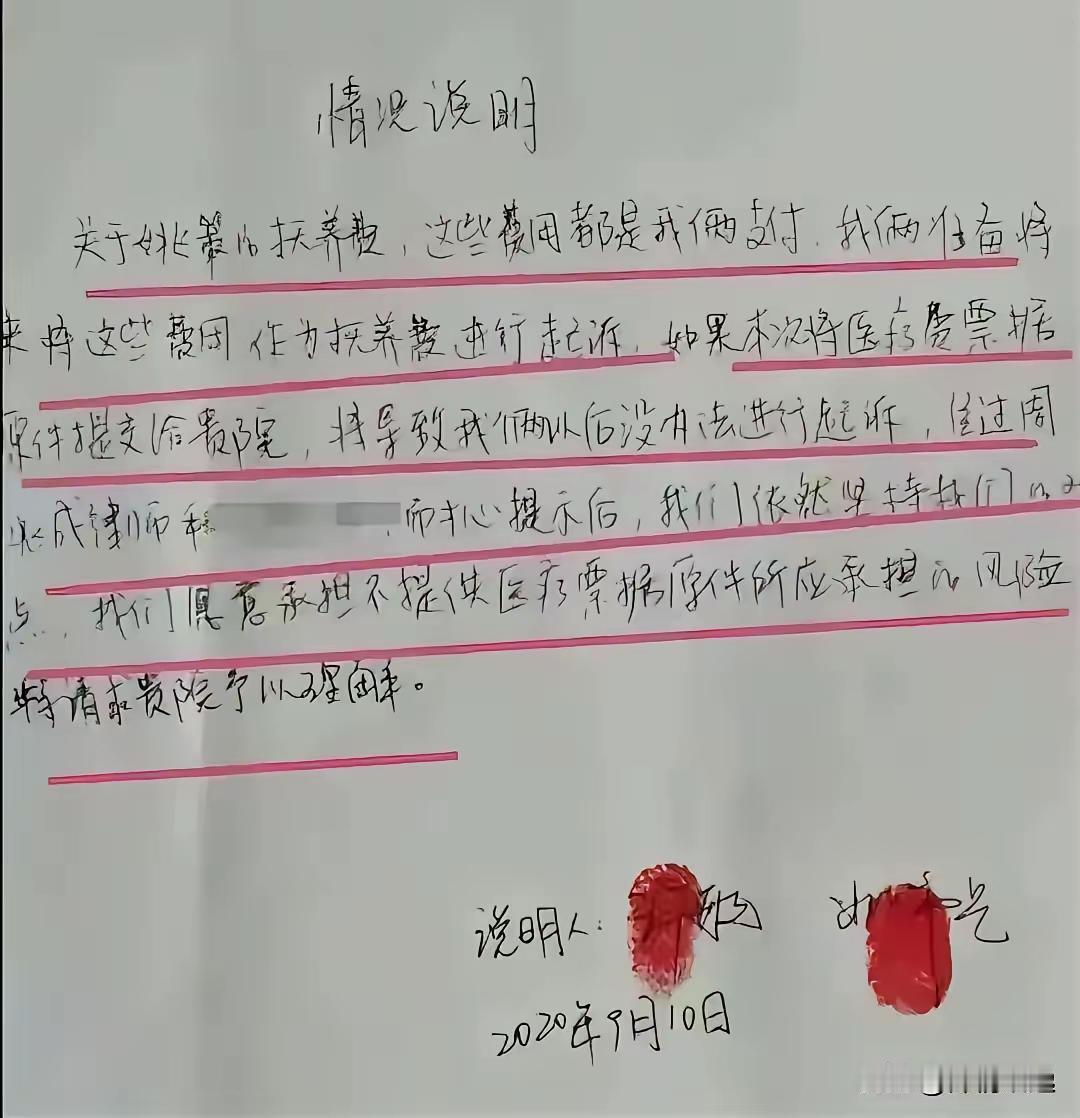 情况说明
关于姚策的扶养费，这些费用都是我俩支付，我俩准备将
来将这些费用作为扶养费进行起诉，如果本次将医疗费票据
原件提交给贵院，将导致我俩以后没办法进行起诉，经过周
兆成律师和，耐心提示后，我们依然坚持我们的观
点，我们愿意承担不提供医疗票据原件所应承担的风险
特请求贵院予以理解。
说明人：
2020年9月10日